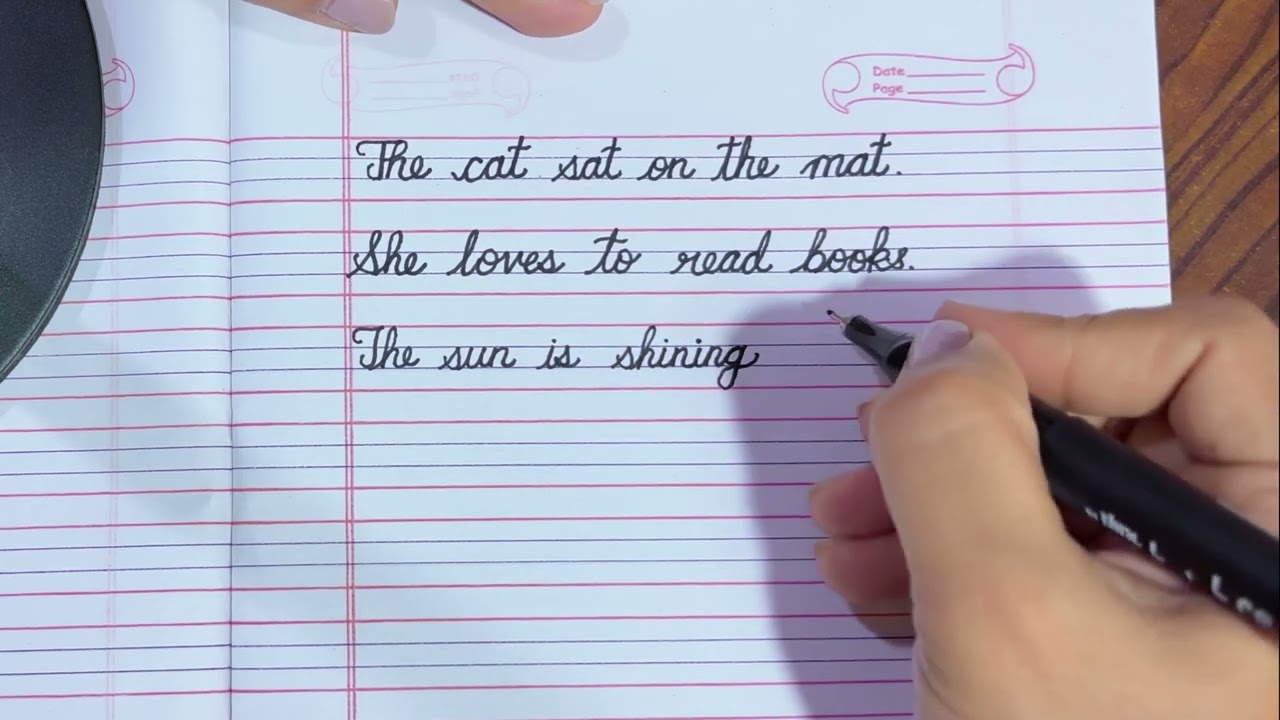 Date
Page
The cat sat on the mat.
She loves to read books.
The sun is shining